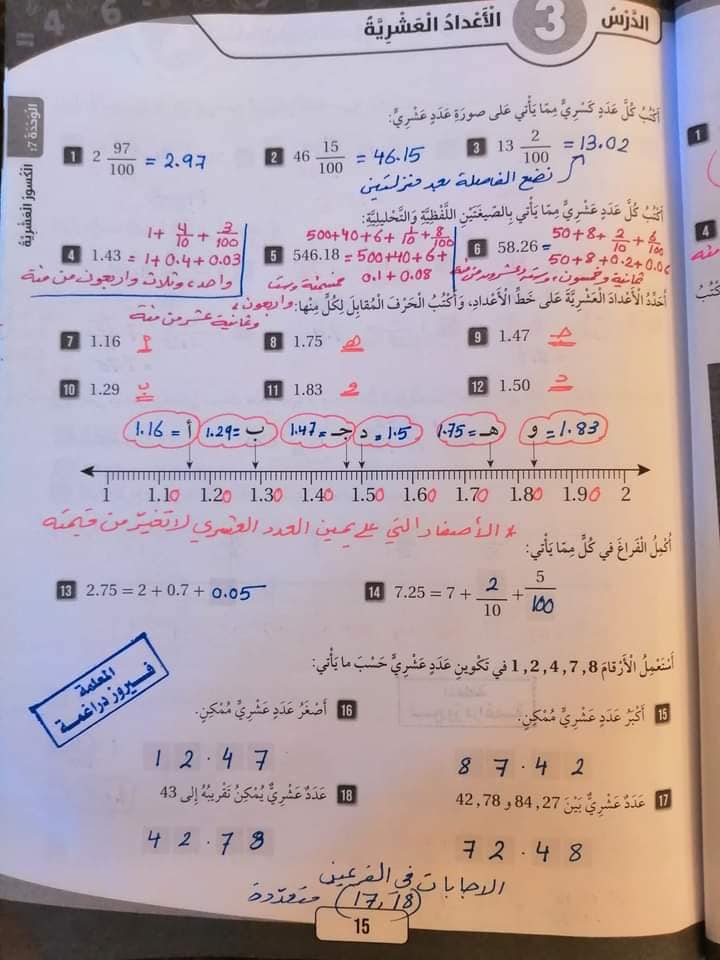 الدَّرْسُ 3 الْأَعْدَادُ الْعَشْرِيَّةُ
الْوَحْدَةُ 7: الْكُسورُ الْعَشْرِيَّةُ
أَكْتُبُ كُلَّ عَدَدٍ كَسْرِيٍّ مِمّا يَأْتي عَلى صورَةِ عَدَدٍ عَشْرِيٍّ:
1 2 97/100 = 2.97 2 46 15/100 = 46.15 3 13 2/100 = 13.02
نضع الفاصلة بعد منزلتين
أَكْتُبُ كُلَّ عَدَدٍ عَشْرِيٍّ مِمّا يَأْتي بِالصّيغَتَيْنِ اللَّفْظِيَّةِ وَالتَّحْليلِيَّةِ:
1 + 4/10 + 3/100 500+40+6+ 1/10 + 8/100 50+8+ 2/10 + 6/100
4 1.43 = 1+0.4+0.03 5 546.18 = 500+40+6+ 0.1+0.08 6 58.26 = 50+8+0.2+0.06
واحد، وثلاث واربعون من مئة
خمسمئة وست واربعون، وثمانية عشر من مئة
ثمانية وخمسون، وستة وعشرون من مئة
أُحَدِّدُ الْأَعْدادَ الْعَشْرِيَّةَ عَلى خَطِّ الْأَعْدادِ، وَأَكْتُبُ الْحَرْفَ الْمُقابِلَ لِكُلٍّ مِنْها:
7 1.16 أ 8 1.75 هـ 9 1.47 جـ
10 1.29 ب 11 1.83 و 12 1.50 د
1.16 = أ 1.29 = ب 1.47 = جـ د = 1.5 1.75 = هـ و = 1.83
1 1.10 1.20 1.30 1.40 1.50 1.60 1.70 1.80 1.90 2
* الأصفار التي على يمين العدد العشري لا تغيّر من قيمته
أُكْمِلُ الْفَراغَ في كُلٍّ مِمّا يَأْتي:
13 2.75 = 2 + 0.7 + 0.05 14 7.25 = 7 + 2/10 + 5/100
أَسْتَعْمِلُ الْأَرْقامَ 1, 2, 4, 7, 8 في تَكْوينِ عَدَدٍ عَشْرِيٍّ حَسْبَ ما يَأْتي:
المعلمة
فيروز دراغمة
15 أَكْبَرُ عَدَدٍ عَشْرِيٍّ مُمْكِنٍ. 16 أَصْغَرُ عَدَدٍ عَشْرِيٍّ مُمْكِنٍ.
8 7 . 4 2 1 2 . 4 7
17 عَدَدٌ عَشْرِيٌّ بَيْنَ 84,27 و 42,78 18 عَدَدٌ عَشْرِيٌّ يُمْكِنُ تَقْريبُهُ إِلى 43
7 2 . 4 8 4 2 . 7 8
الاجابات في الفرعين
(17, 18) متعدّدة
15